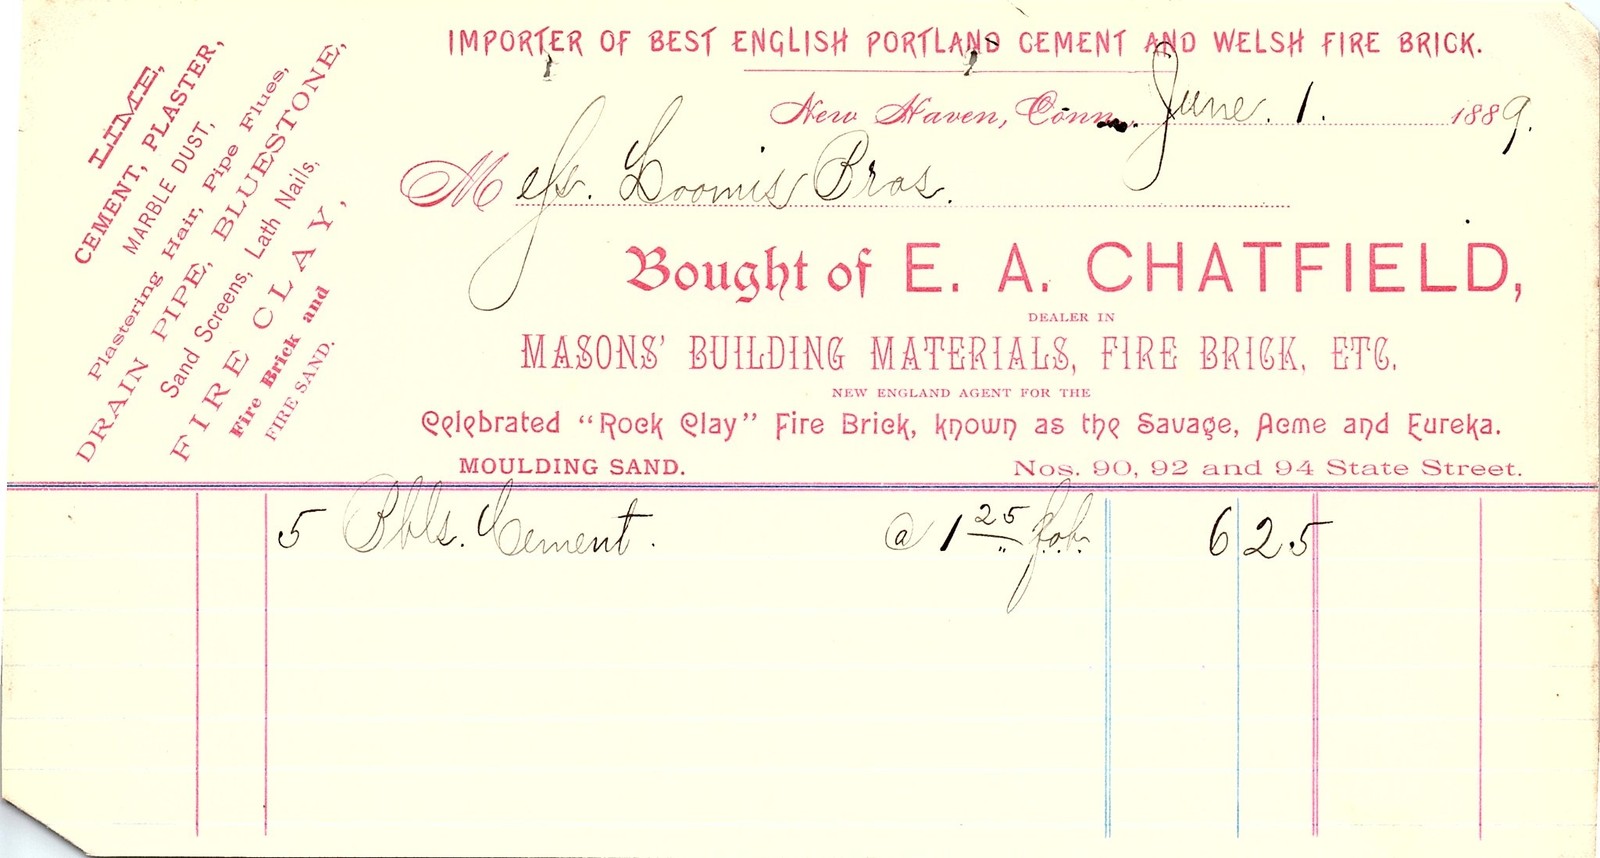 IMPORTER OF BEST ENGLISH PORTLAND CEMENT AND WELSH FIRE BRICK.
New Haven, Conn. June. 1. 1889.
Mess. Loomis Bros.
Bought of E. A. CHATFIELD,
DEALER IN
MASONS' BUILDING MATERIALS, FIRE BRICK, ETC.
NEW ENGLAND AGENT FOR THE
Celebrated "Rock Clay" Fire Brick, known as the Savage, Acme and Eureka.
MOULDING SAND. Nos. 90, 92 and 94 State Street.
LIME,
CEMENT, PLASTER,
MARBLE DUST,
Plastering Hair, Pipe Flues,
DRAIN PIPE, BLUESTONE,
Sand Screens, Lath Nails,
FIRE CLAY,
Fire Brick and
FIRE SAND.
5 Bbls. Cement. @ 1 25 f.o.b. 6 25